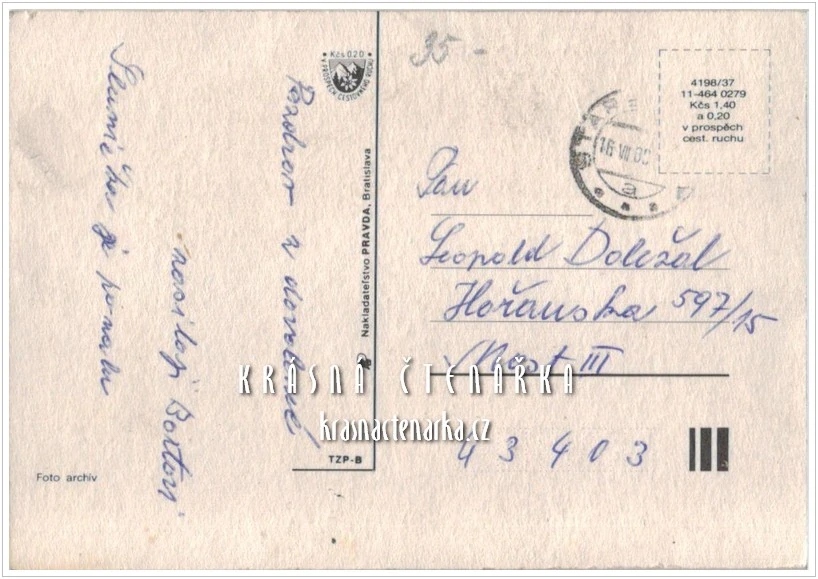 35-
• Kčs 0,20 •
V PROSPĚCH CESTOVNÉHO RUCHU
4198/37
11-464 0279
Kčs 1,40
a 0,20
v prospěch
cest. ruchu
16.VII.
a
Pan
Leopold Doležal
Hořanska 597/15
Most III
43403
Pozdrav z dovolené
posílají
je pomálu
Nakladateľstvo PRAVDA, Bratislava
TZP-B
Foto archív
KRÁSNÁ ČTENÁŘKA
krasnactenarka.cz